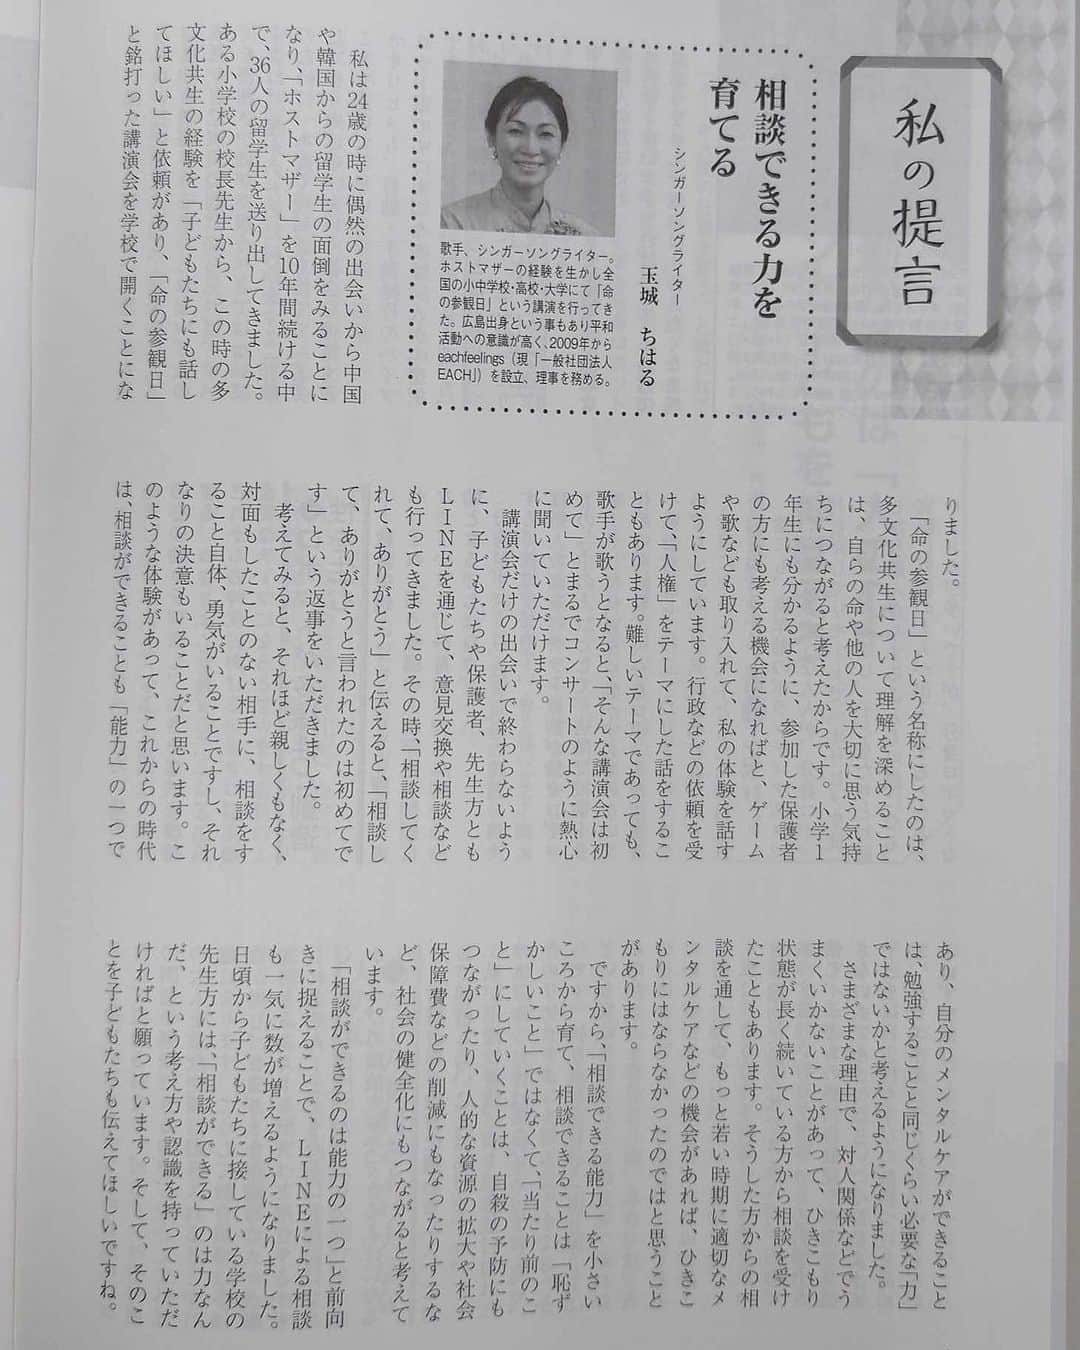 私の提言
相談できる力を
育てる
シンガーソングライター
玉城　ちはる
歌手、シンガーソングライター。
ホストマザーの経験を生かし全
国の小中学校・高校・大学にて「命
の参観日」という講演を行ってき
た。広島出身という事もあり平和
活動への意識が高く、2009年から
eachfeelings（現「一般社団法人
EACH」）を設立、理事を務める。
私は24歳の時に偶然の出会いから中国
や韓国からの留学生の面倒をみることに
なり、「ホストマザー」を10年間続ける中
で、36人の留学生を送り出してきました。
ある小学校の校長先生から、この時の多
文化共生の経験を「子どもたちにも話し
てほしい」と依頼があり、「命の参観日」
と銘打った講演会を学校で開くことにな
りました。
「命の参観日」という名称にしたのは、
多文化共生について理解を深めること
は、自らの命や他の人を大切に思う気持
ちにつながると考えたからです。小学1
年生にも分かるように、参加した保護者
の方にも考える機会になればと、ゲーム
や歌なども取り入れて、私の体験を話す
ようにしています。行政などの依頼を受
けて、「人権」をテーマにした話をするこ
ともあります。難しいテーマであっても、
歌手が歌うとなると、「そんな講演会は初
めて」とまるでコンサートのように熱心
に聞いていただけます。
講演会だけの出会いで終わらないよう
に、子どもたちや保護者、先生方とも
LINEを通じて、意見交換や相談など
も行ってきました。その時、「相談してく
れて、ありがとう」と伝えると、「相談し
て、ありがとうと言われたのは初めてで
す」という返事をいただきました。
考えてみると、それほど親しくもなく、
対面もしたことのない相手に、相談をす
ること自体、勇気がいることですし、それ
なりの決意もいることだと思います。こ
のような体験があって、これからの時代
は、相談ができることも「能力」の一つで
あり、自分のメンタルケアができること
は、勉強することと同じくらい必要な「力」
ではないかと考えるようになりました。
さまざまな理由で、対人関係などでう
まくいかないことがあって、ひきこもり
状態が長く続いている方から相談を受け
たこともあります。そうした方からの相
談を通して、もっと若い時期に適切なメ
ンタルケアなどの機会があれば、ひきこ
もりにはならなかったのではと思うこと
があります。
ですから、「相談できる能力」を小さい
ころから育て、相談できることは「恥ず
かしいこと」ではなくて、「当たり前のこ
と」にしていくことは、自殺の予防にも
つながったり、人的な資源の拡大や社会
保障費などの削減にもなったりするな
ど、社会の健全化にもつながると考えて
います。
「相談ができるのは能力の一つ」と前向
きに捉えることで、LINEによる相談
も一気に数が増えるようになりました。
日頃から子どもたちに接している学校の
先生方には、「相談ができる」のは力なん
だ、という考え方や認識を持っていただ
ければと願っています。そして、そのこ
とを子どもたちも伝えてほしいですね。